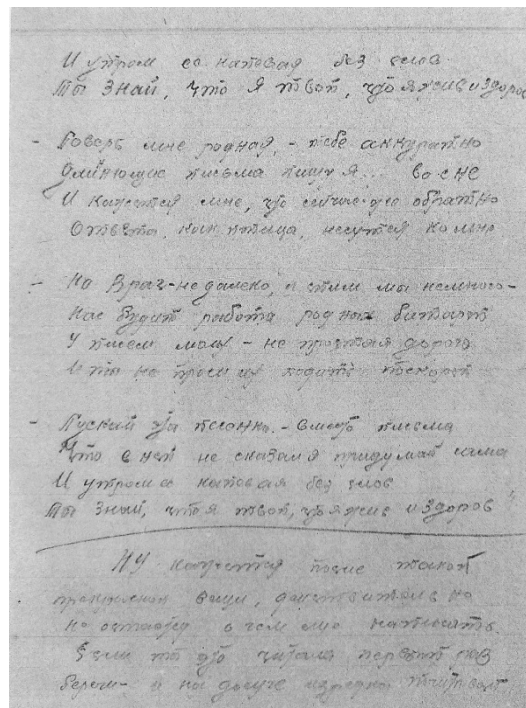 И утром ее напевая без слов
Ты знай, что я твой, что я жив и здоров
- Поверь мне родная, - тебе аккуратно
длинющие письма пишу я... во сне
И кажется мне, что сейчас же обратно
Ответы, как птица, несутся ко мне
- Но Враг - недалеко, и спим мы немного -
Нас будит работа родных батарей
У писем моих - не простая дорога
И ты не проси их ходить поскорей
- Пускай эта песенка - вместо письма
Что в ней не сказал я придумай сама
И утром ее напевая без слов
Ты знай, что я твой, что я жив и здоров
Ну кажется после такой
вещи, действительно
не о чем мне написать.
Если ты это читала первый раз
береги - и на досуге изредка